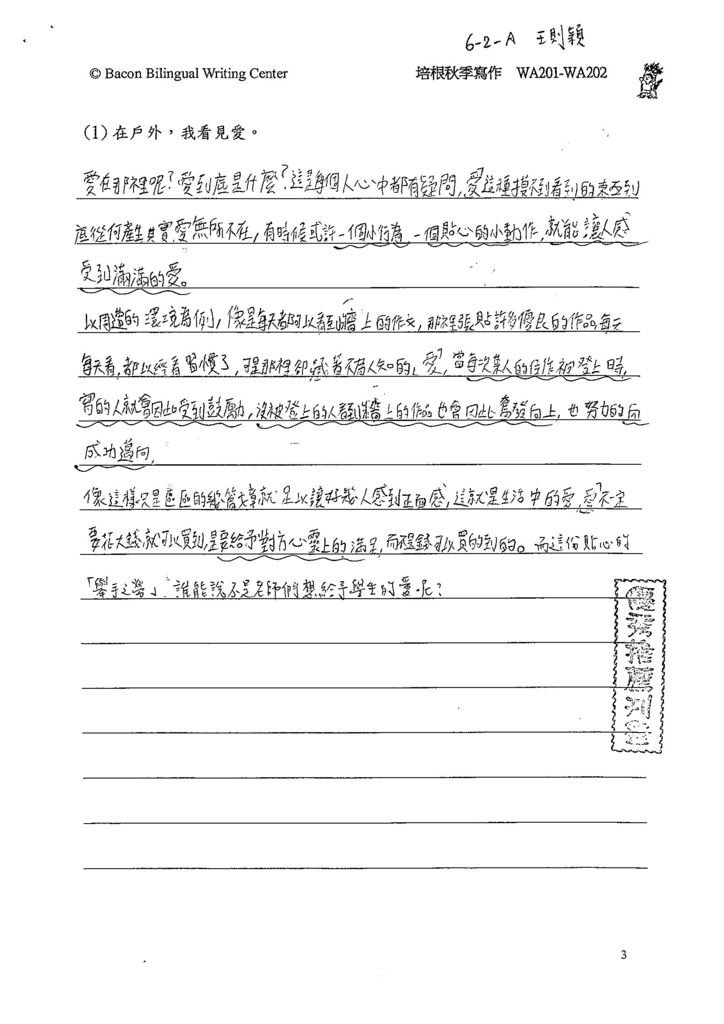 6-2-A 王則穎
© Bacon Bilingual Writing Center 培根秋季寫作 WA201-WA202
(1)在戶外，我看見愛。
愛在那裡呢？愛到底是什麼？這是每個人心中都有疑問，愛這種摸不到看到的東西到
底從何產生其實，愛無所不在，有時候或許一個小行為 一個貼心的小動作，就能讓人感
受到滿滿的愛。
以周遭的環境為例，像是每天都可以看到牆上的作文，那裡張貼許多優良的作品每天
每天看，都以經看習慣了，可是那裡卻藏著不為人知的「愛」，當每次某人的佳作被登上時，
寫的人就會因此受到鼓勵，沒被登上的人看到牆上的作品也會因此奮發向上，也努力的向
成功邁向，
像這樣只是區區的幾篇文章就足以讓好幾人感到正面感，這就是生活中的愛，愛不一定
要花大錢就可以買到，是要給予對方心靈上的滿足，而不是錢可以買的到的。而這份貼心的
「舉手之勞」，誰能說不是老師們想給予學生的愛呢？
優秀推薦刊登
3